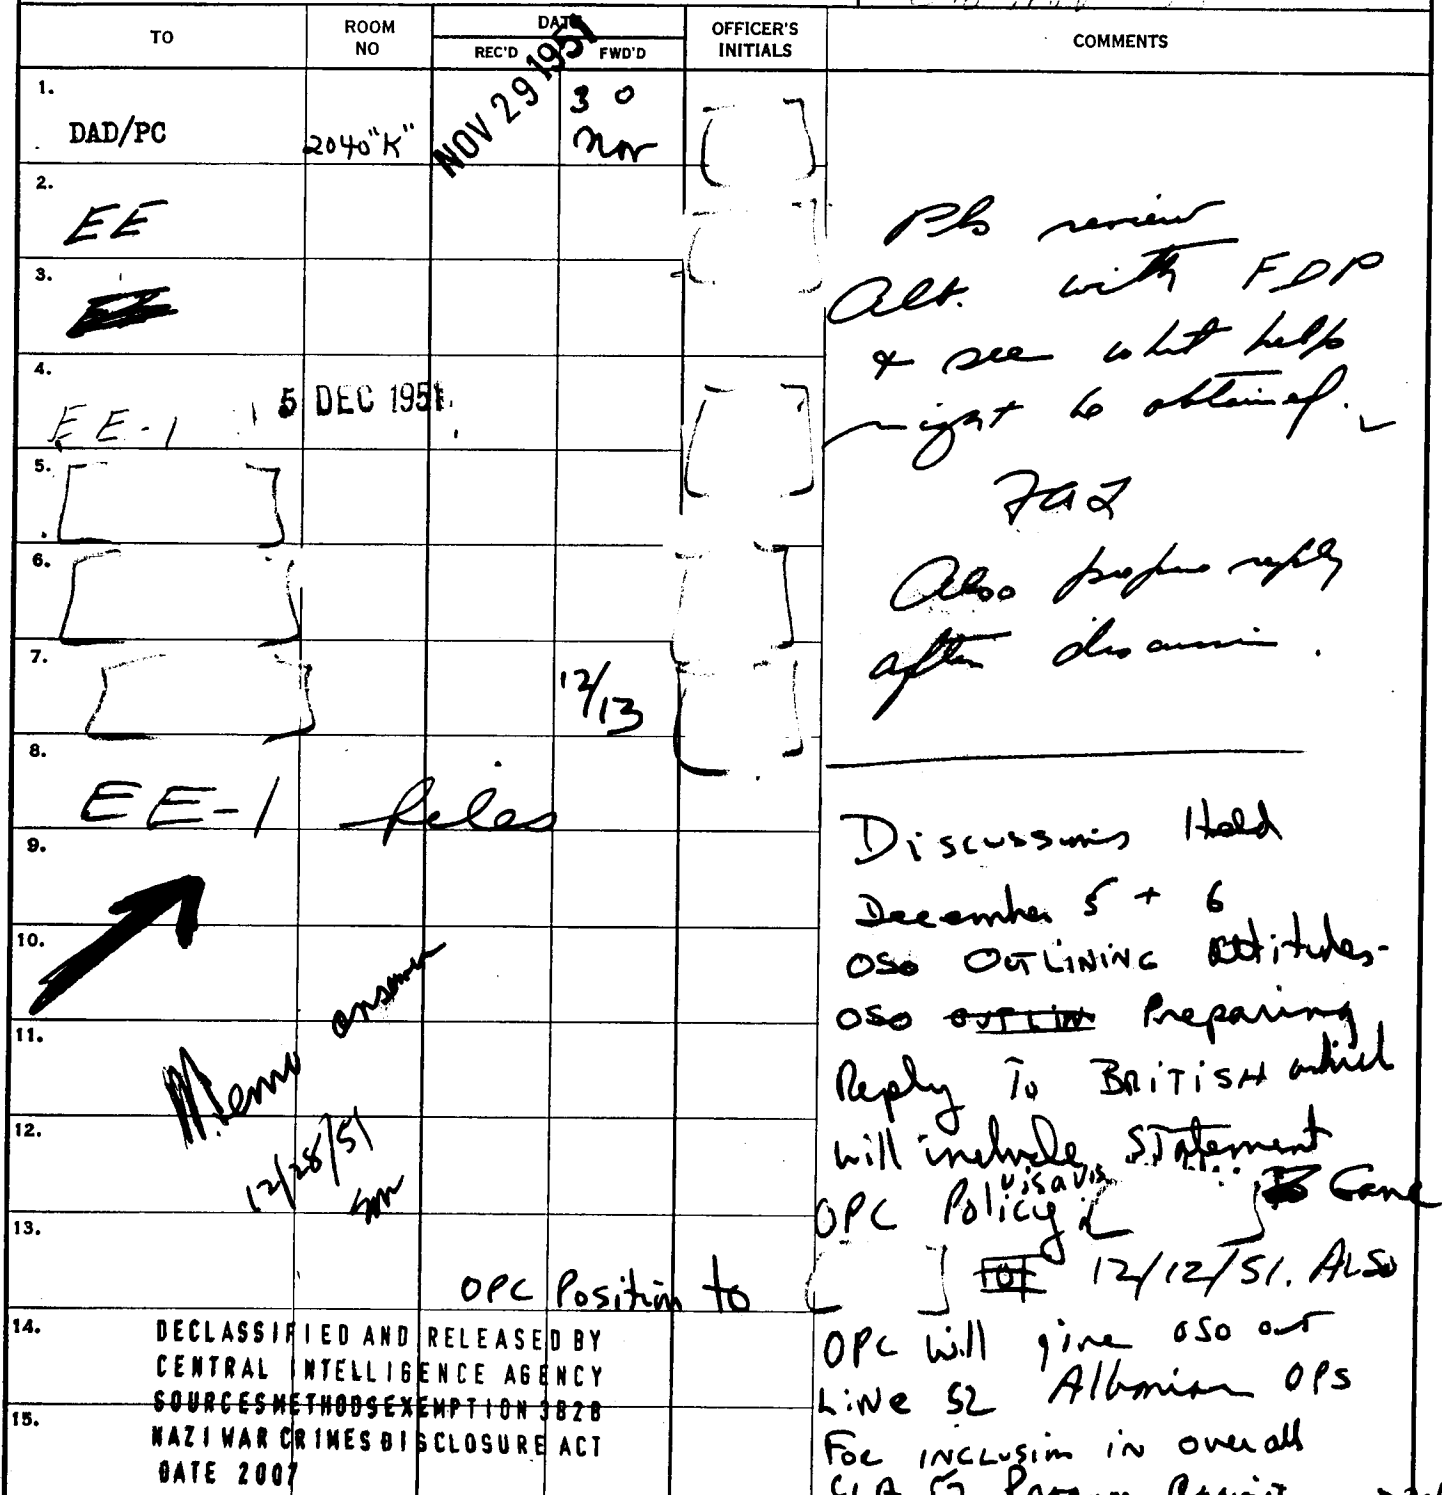 TO
ROOM NO
DATE
REC'D
FWD'D
OFFICER'S INITIALS
COMMENTS
1.
DAD/PC
2040 "K"
NOV 29 1951
30 Nov
2.
EE
3.
4.
EE-1
5 DEC 1951
5.
6.
7.
12/13
8.
EE-1 files
9.
10.
11.
12.
13.
14.
15.
Memo answer
12/28/51
Pls review
Alt. with FDP
& see what help
might be obtained.
Also prepare reply
after discussion.
Discussions Held
December 5 + 6
OSO OUTLINING attitudes-
OSO OUTLIN Preparing
Reply To BRITISH which
will include STatement
OPC Policy vis a vis
Gave
OPC Position to
12/12/51. ALSO
OPC will give OSO out
LiNe 52 Albanian OPs
For INCLUSion in overall
DECLASSIFIED AND RELEASED BY
CENTRAL INTELLIGENCE AGENCY
SOURCESMETHODSEXEMPTION 3B2B
NAZI WAR CRIMES DISCLOSURE ACT
DATE 2007